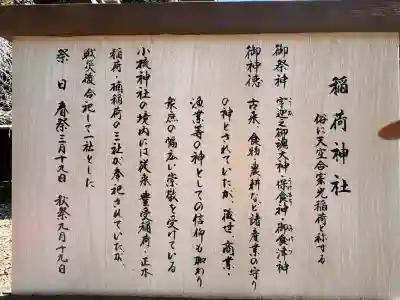 稲荷神社
俗に天空合寄光稲荷と称する
御祭神 宇迦之御魂大神 保食神 御食津神
うか みたま うけもち みけつ
御神徳 古来、食物、農耕など諸産業の守り
の神とされていたが、後世、商業・
漁業等の神としての信仰も加わり
衆庶の幅広い崇敬を受けている
小被神社の境内には従来 豊受稲荷・正木
稲荷・楠稲荷の三社が奉祀されていたが、
戦災後合祀して一社とした
祭日 春祭三月十九日 秋祭九月十九日